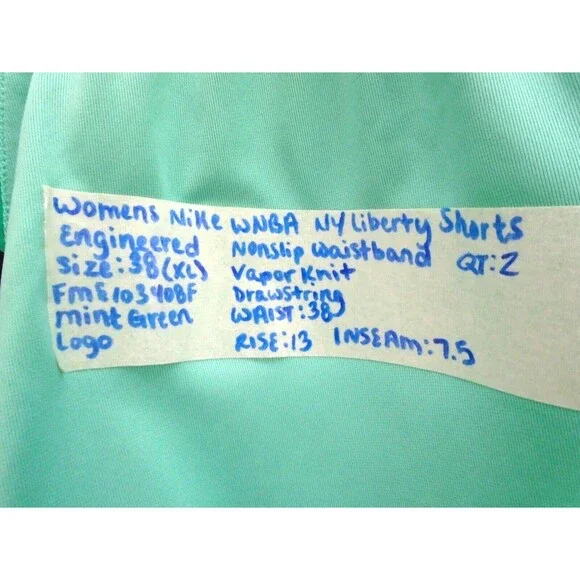 Womens Nike WNBA NY Liberty Shorts
Engineered Nonslip Waistband QT:2
Size:38(XL) Vapor Knit
FME103408F Drawstring
Mint Green WAIST:38
Logo RISE:13 INSEAM:7.5